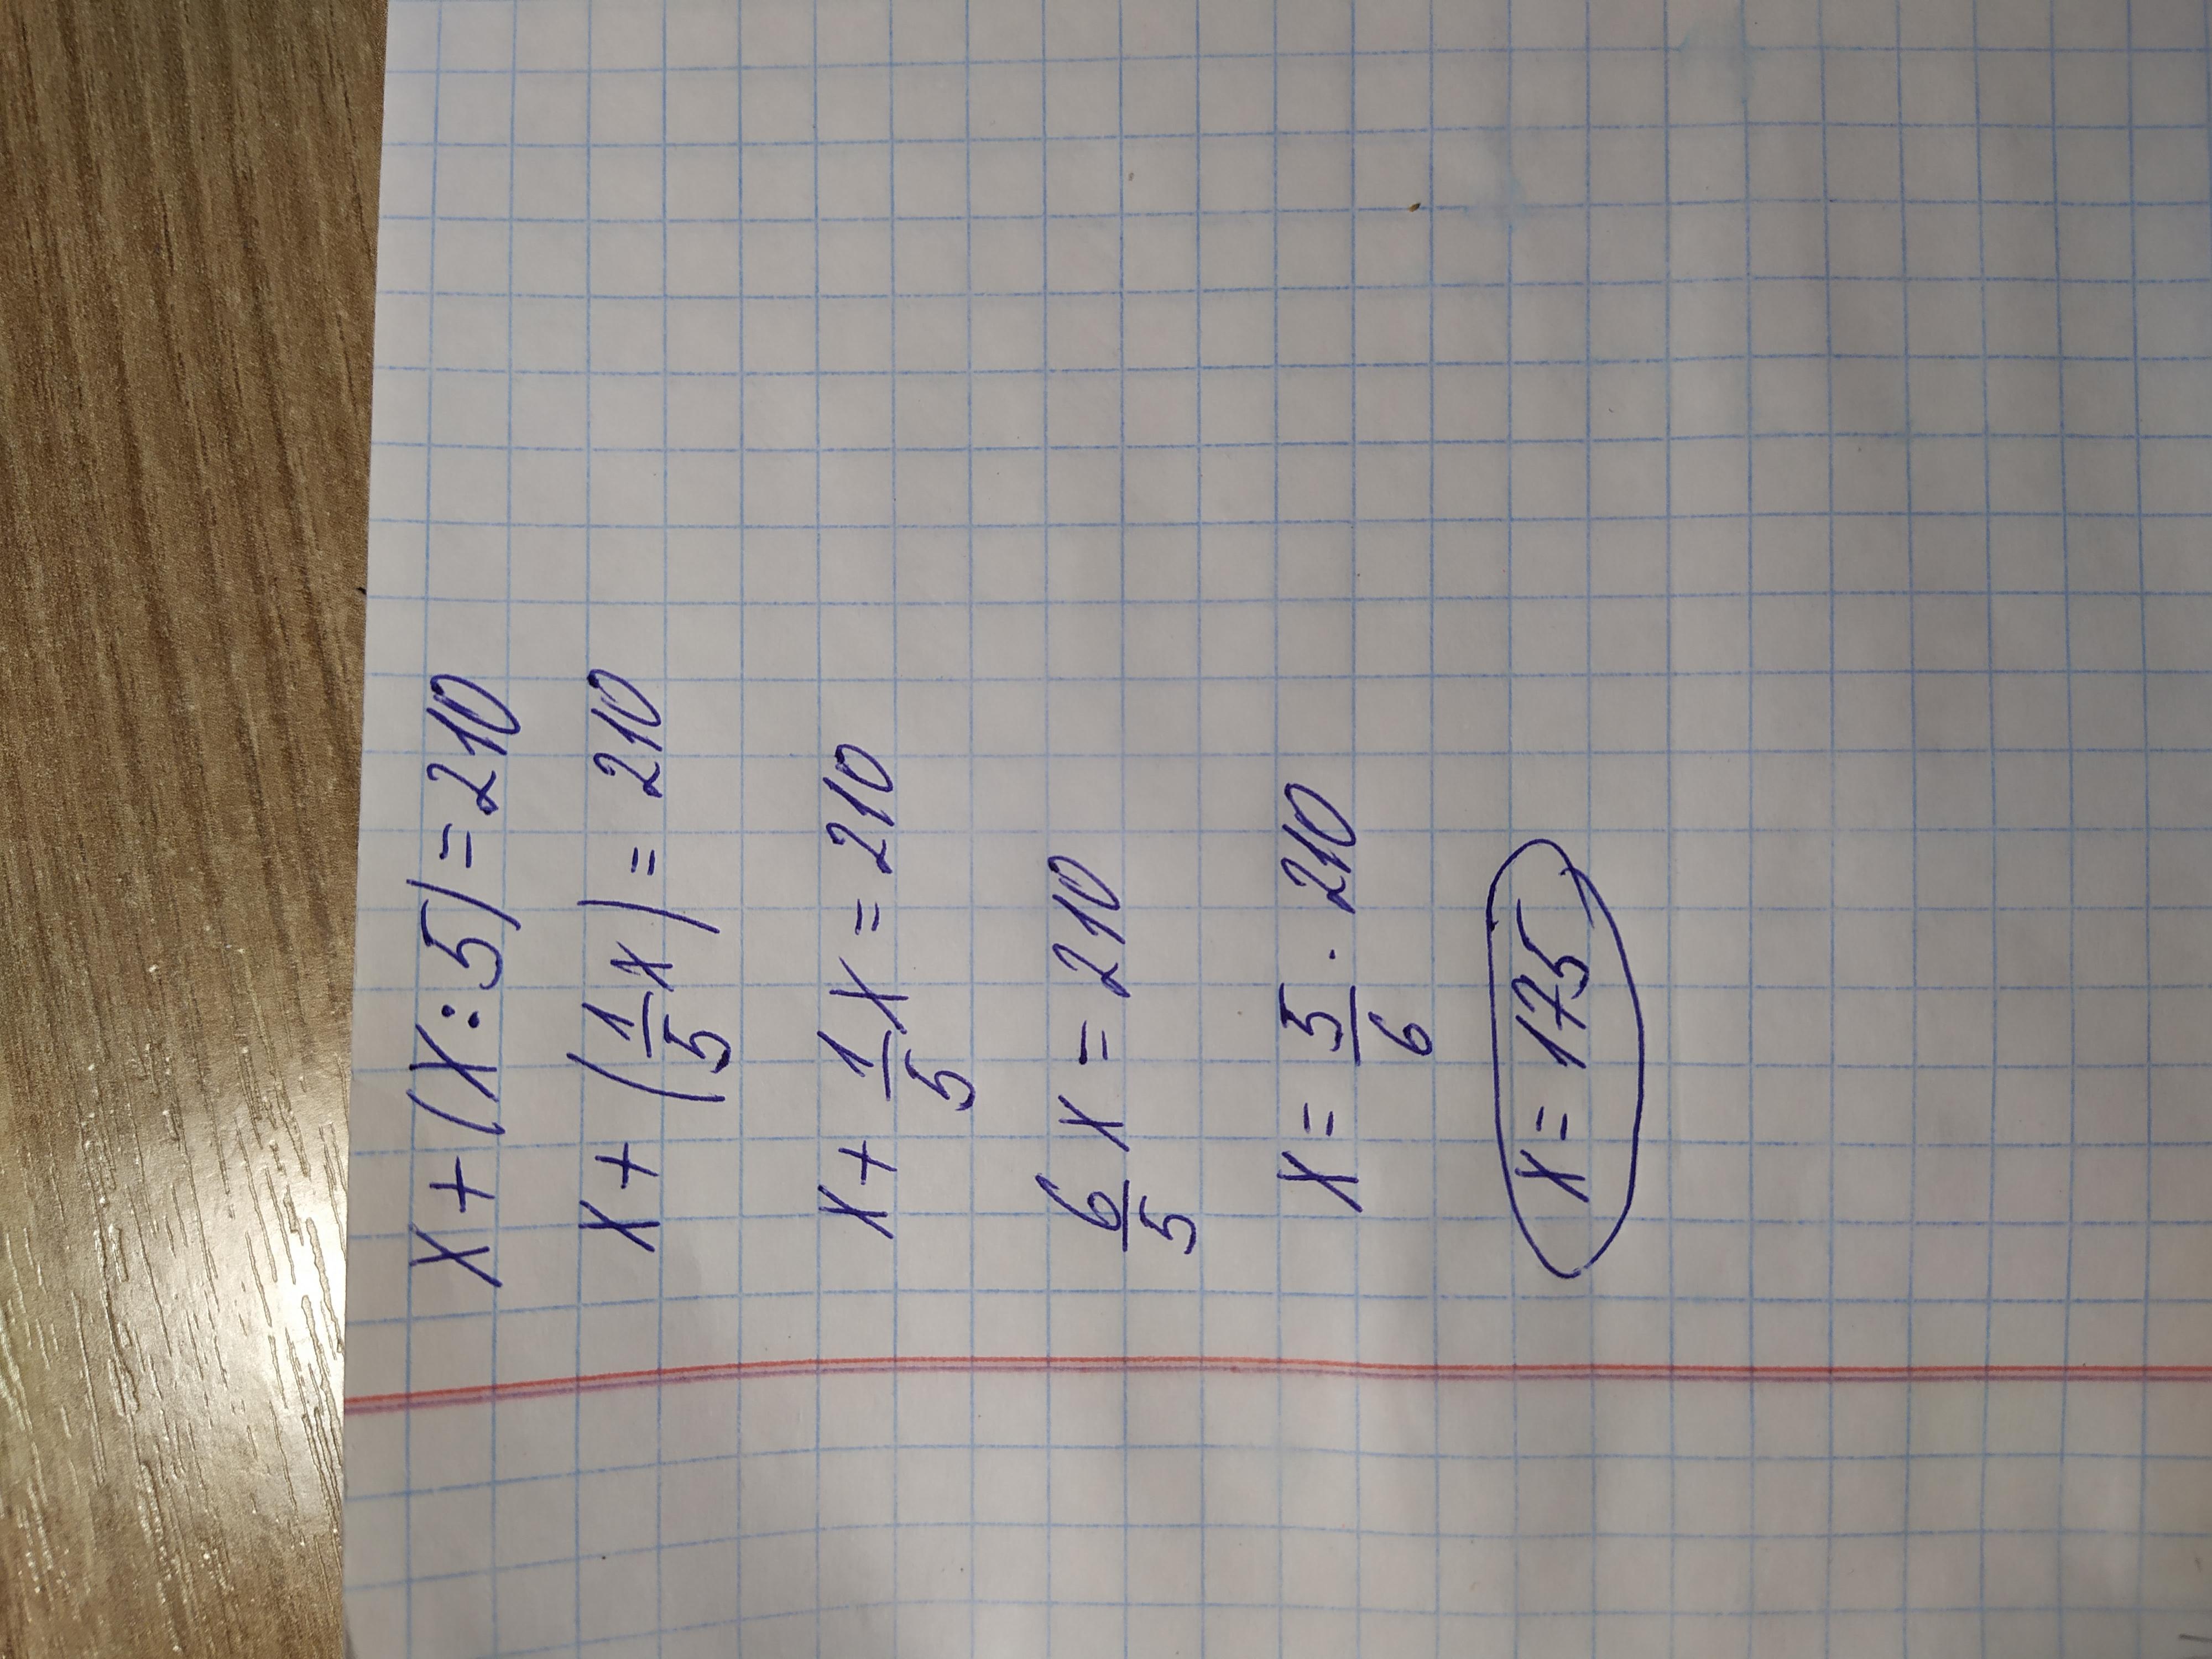 x+(x:5)=210
x+(1/5x)=210
x+1/5x=210
6/5x=210
x=5/6·210
x=175